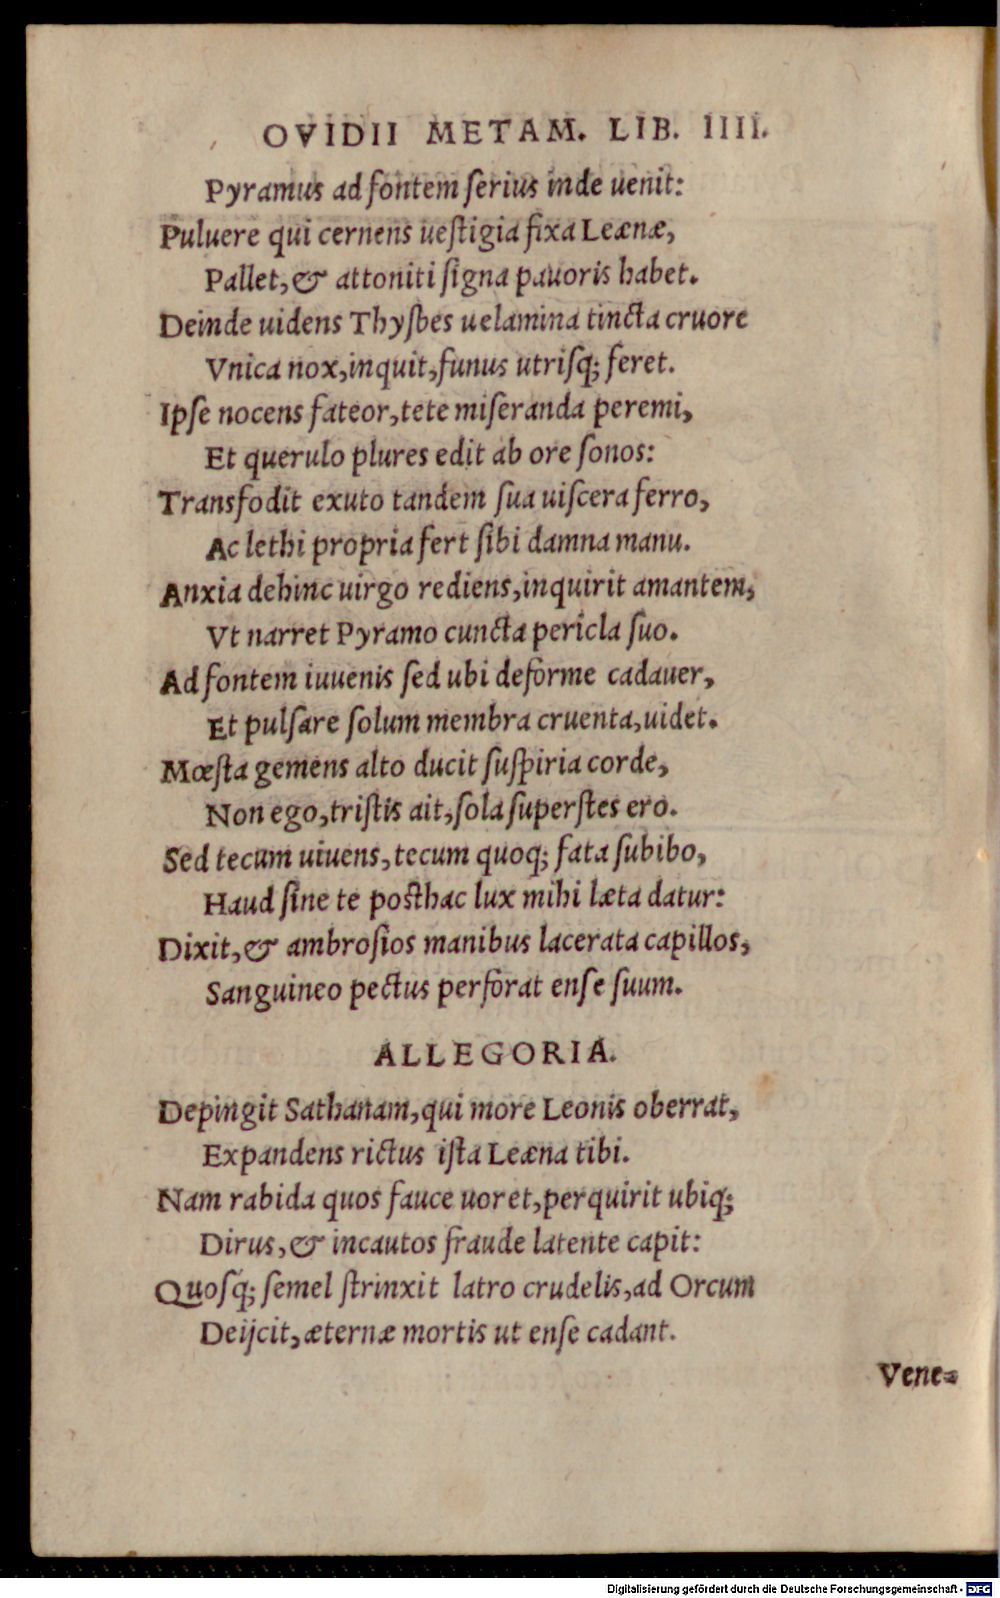 OVIDII METAM. LIB. IIII.
Pyramus ad fontem ſerius inde uenit:
Puluere qui cernens ueſtigia fixa Leænæ,
Pallet, & attoniti ſigna pauoris habet.
Deinde uidens Thyſbes uelamina tincta cruore
Vnica nox, inquit, funus utriſq; feret.
Ipſe nocens fateor, tete miſeranda peremi,
Et querulo plures edit ab ore ſonos:
Transfodit exuto tandem ſua uiſcera ferro,
Ac lethi propria fert ſibi damna manu.
Anxia dehinc uirgo rediens, inquirit amantem,
Vt narret Pyramo cuncta pericla ſuo.
Ad fontem iuuenis ſed ubi deforme cadauer,
Et pulſare ſolum membra cruenta, uidet.
Mœſta gemens alto ducit ſuſpiria corde,
Non ego, triſtis ait, ſola ſuperſtes ero.
Sed tecum uiuens, tecum quoq; fata ſubibo,
Haud ſine te poſthac lux mihi læta datur:
Dixit, & ambroſios manibus lacerata capillos,
Sanguineo pectus perforat enſe ſuum.
ALLEGORIA.
Depingit Sathanam, qui more Leonis oberrat,
Expandens rictus iſta Leæna tibi.
Nam rabida quos fauce uoret, perquirit ubiq;
Dirus, & incautos fraude latente capit:
Quoſq; ſemel ſtrinxit latro crudelis, ad Orcum
Deijcit, æternæ mortis ut enſe cadant.
Vene-
Digitalisierung gefördert durch die Deutsche Forschungsgemeinschaft - DFG